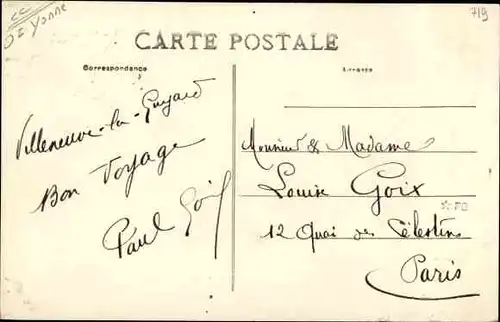 719
CC
Yonne
CARTE POSTALE
Correspondance
Villeneuve-la-Guyard
Bon Voyage
Paul Goix
Monsieur & Madame
Louise Goix
12 Quai des Célestins
Paris